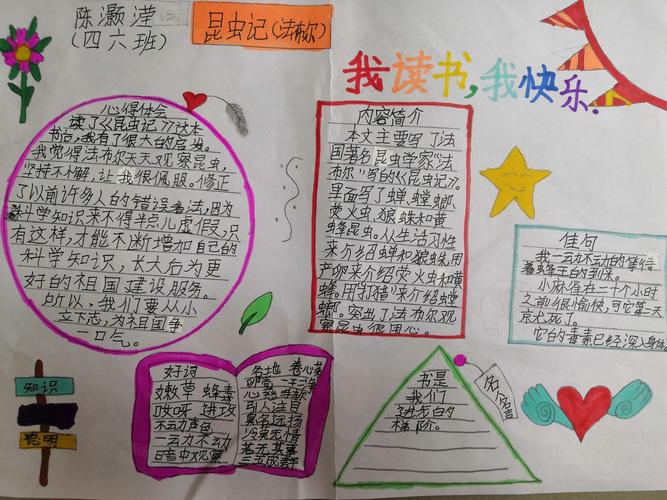 陈灏滢
(四六班)
昆虫记(法布尔)
我读书,我快乐.
心得体会
读了《昆虫记》这本
书后,我有了很大的启发。
我觉得法布尔天天观察昆虫,
坚持不解,让我很佩服。修正
了以前许多人的错误看法,因为
科学知识来不得半点儿虚假,只
有这样,才能不断增加自己的
科学知识,长大后为更
好的祖国建设服务。
所以,我们要从小
立下志,为祖国争
一口气。
内容简介
本文主要写了法
国著名昆虫学家“法
布尔”写的《昆虫记》。
里面写了蝉、螳螂、
萤火虫、狼蛛和黄
蜂昆虫。从生活习性
来介绍蝉和狼蛛,用
产卵来介绍萤火虫和黄
蜂。用“打猎”来介绍螳
螂。突出了法布尔观
察昆虫很用心。
佳句
我一动不动的等待
着蜂王的到来。
小麻雀在二十个小时
之前很愉快,可它第二天
就死了。
它的毒素已经深入身体
好词
嫩草 蜂毒
哎呀 进攻
不动声色
一动不动
昆虫观察
各地 卷心菜
引人注目
三五成群
书是
我们
进步的
梯阶。
名言
知识
聪明